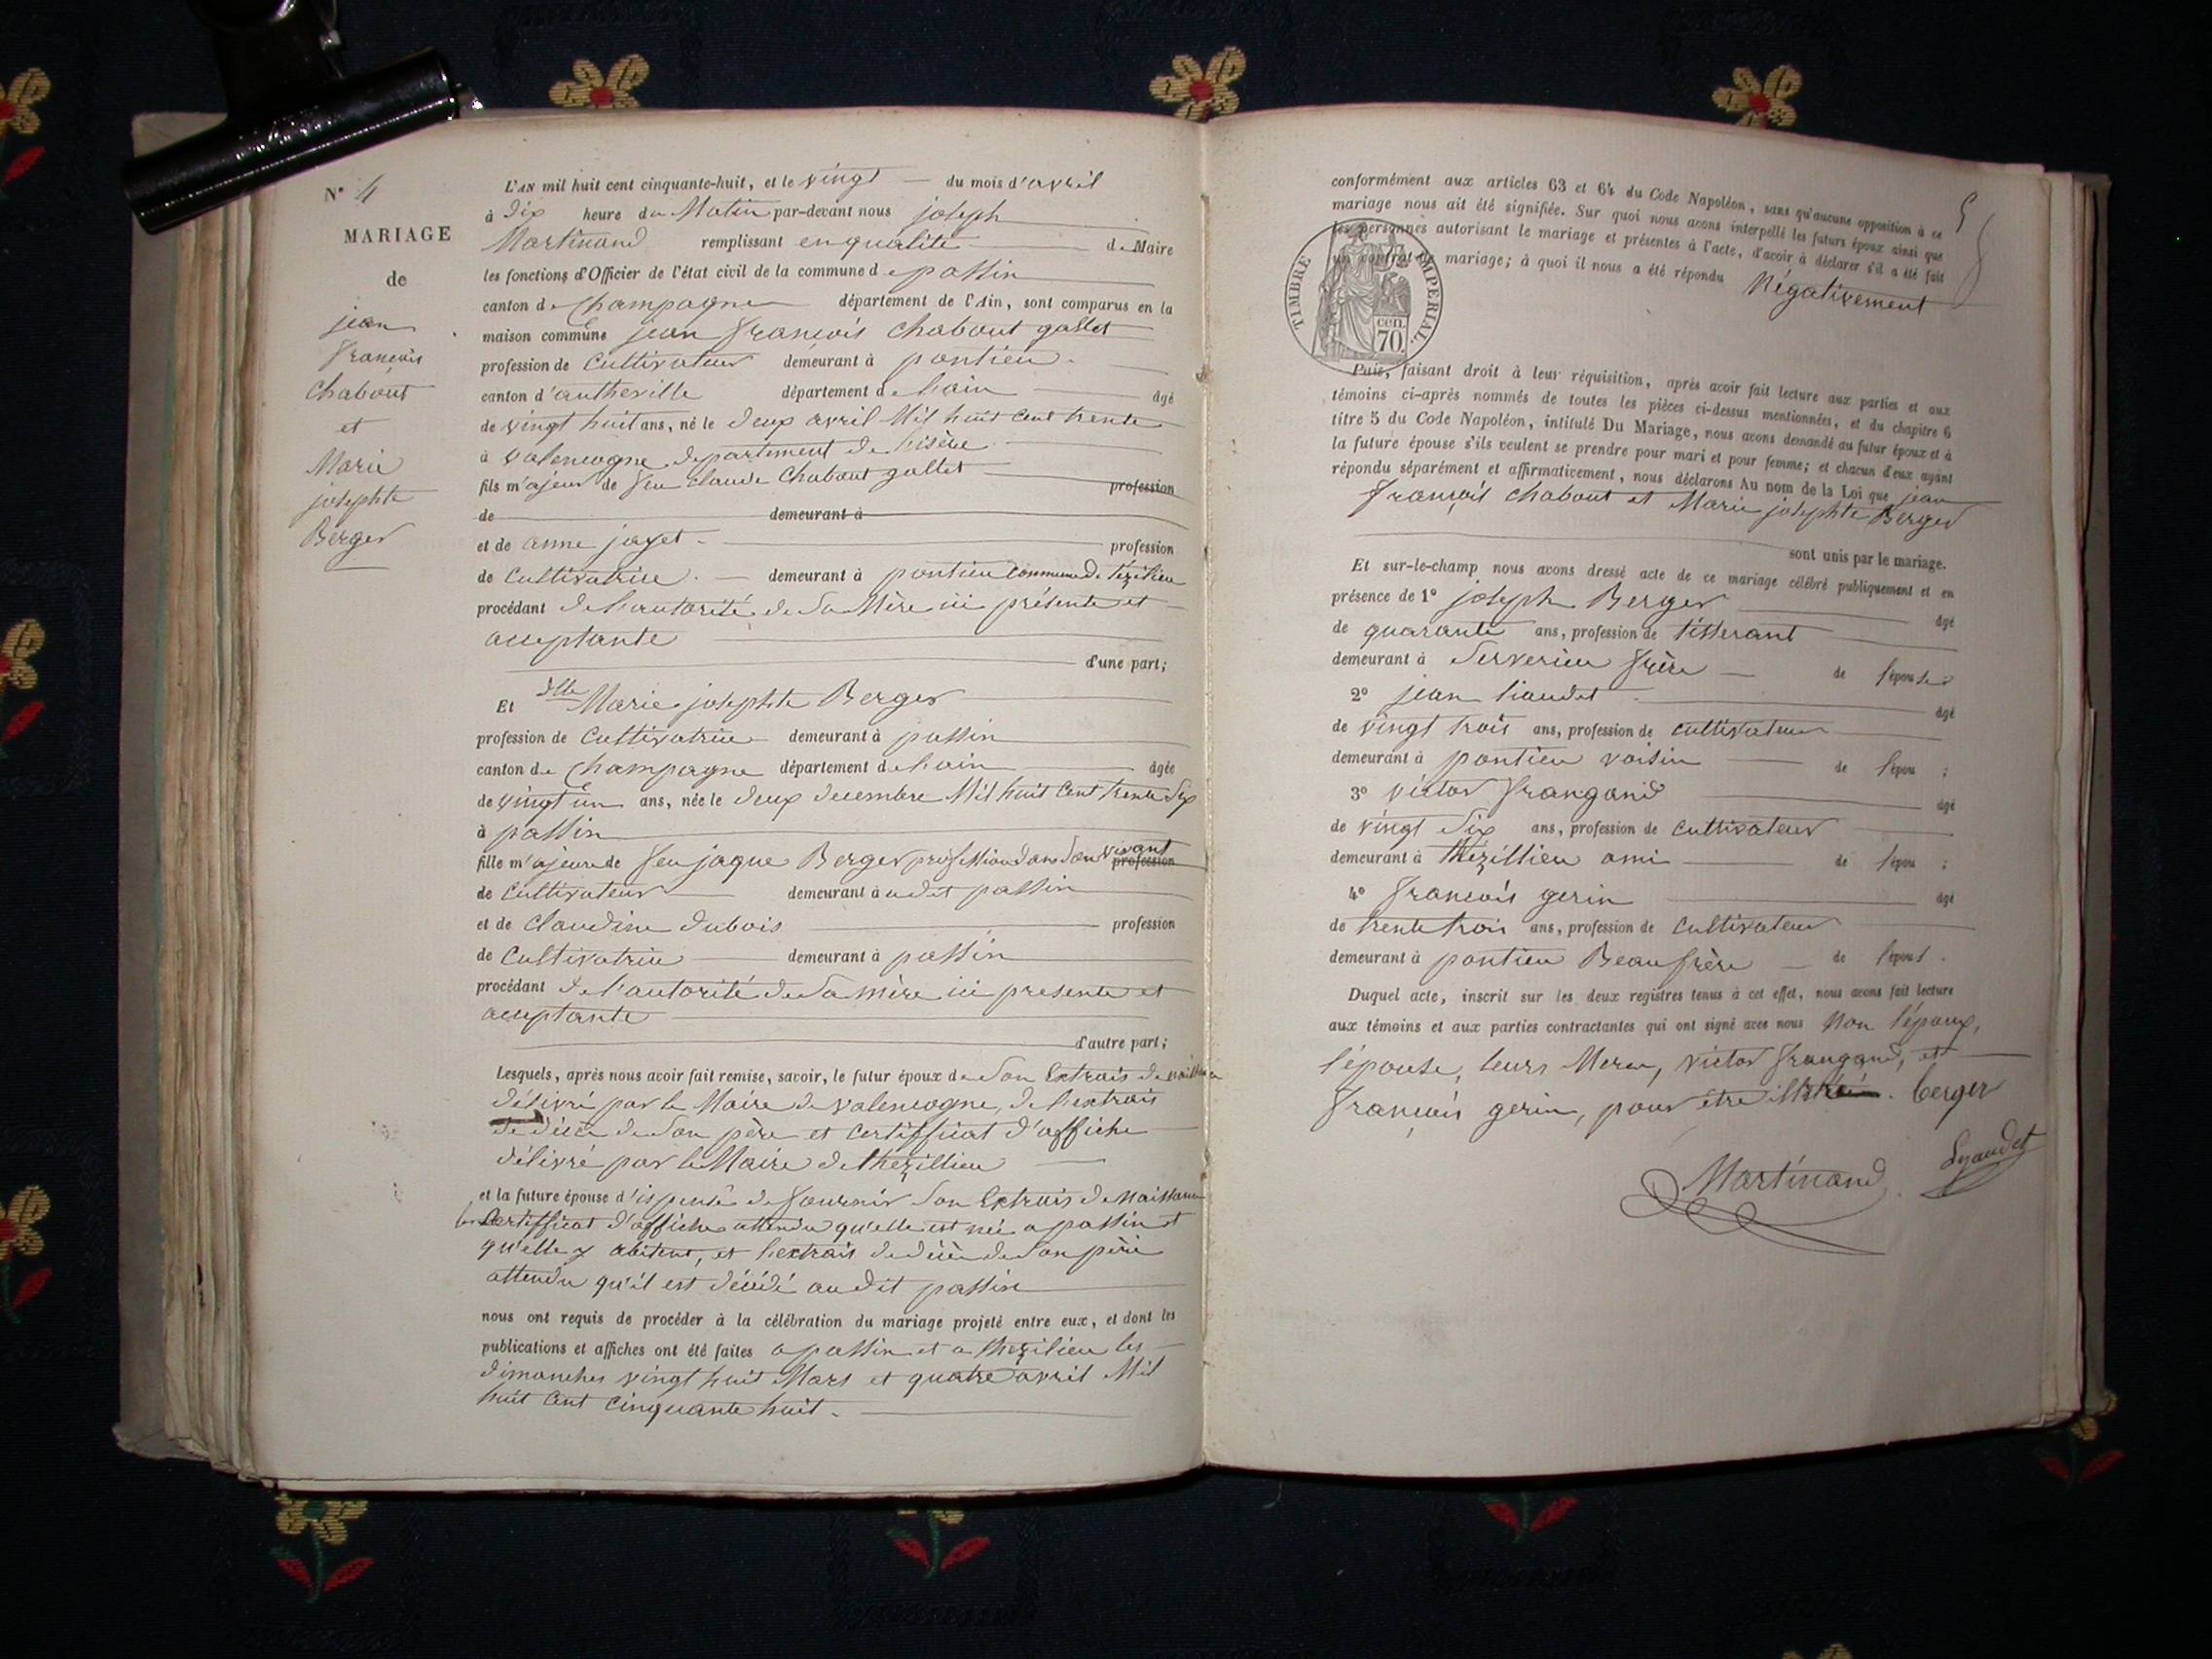 N° 4
MARIAGE
de
jean
françois
Chabout
et
Marie
josephte
Berger
L'AN mil huit cent cinquante-huit, et le vingt du mois d'avril
à dix heure du Matin par-devant nous joseph
Martinand remplissant en qualité de Maire
les fonctions d'Officier de l'état civil de la commune de passin
canton de Champagne département de l'Ain, sont comparus en la
maison commune jean françois Chabout gallet
profession de Cultivateur demeurant à pontieu
canton d'autheville département de lain âgé
de vingt huit ans, né le deux avril Mil huit cent trente
à valencogne departement de lisère
fils majeur de feu claude Chabout gallet profession
de demeurant à
et de anne jayet profession
de cultivatrice demeurant à pontieu commune de tézilieu
procédant de l'autorité de sa Mère ici présente et
acceptante
d'une part;
Et dlle Marie josephte Berger
profession de Cultivatrice demeurant à passin
canton de Champagne département de lain âgée
de vingt un ans, née le deux decembre Mil huit cent trente six
à passin
fille majeure de feu jaque Berger profession dans son vivant profession
de cultivateur demeurant à udit passin
et de Claudine dubois profession
de Cultivatrice demeurant à passin
procédant de l'autorité de sa mère ici presente et
acceptante
d'autre part;
Lesquels, après nous avoir fait remise, savoir, le futur époux de son Extrais de naissance
délivré par le Maire de valencogne, de lextrais
de décès de son père et certifficat d'affiche
délivré par le Maire de thezillieu
et la future épouse d'ispensé de fournir son Extrais de Naissance
certifficat d'affiche attendu qu'elle est née a passin et
qu'elle y abitent, et l'extrais de décès de son père
attendu qu'il est décédé au dit passin
nous ont requis de procéder à la célébration du mariage projeté entre eux, et dont les
publications et affiches ont été faites a passin et a thezilieu les
dimanches vingt huit Mars et quatre avril Mil
huit cent cinquante huit.
5
conformément aux articles 63 et 64 du Code Napoléon, sans qu'aucune opposition à ce
mariage nous ait été signifiée. Sur quoi nous avons interpellé les futurs époux ainsi que
les personnes autorisant le mariage et présentes à l'acte, d'avoir à déclarer s'il a été fait
un contrat de mariage; à quoi il nous a été répondu Négativement
TIMBRE IMPERIAL.
cen.
70.
Puis, faisant droit à leur réquisition, après avoir fait lecture aux parties et aux
témoins ci-après nommés de toutes les pièces ci-dessus mentionnées, et du chapitre 6
titre 5 du Code Napoléon, intitulé Du Mariage, nous avons demandé au futur époux et à
la future épouse s'ils veulent se prendre pour mari et pour femme; et chacun d'eux ayant
répondu séparément et affirmativement, nous déclarons Au nom de la Loi que jean
françois chabout et Marie josephte Berger
sont unis par le mariage.
Et sur-le-champ nous avons dressé acte de ce mariage célébré publiquement et en
présence de 1° joseph Berger âgé
de quarante ans, profession de tisserant
demeurant à Serverieu frère de l'épouse
2° jean liaudet âgé
de vingt trois ans, profession de cultivateur
demeurant à pontieu voisin de l'épou ;
3° victor frangand âgé
de vingt six ans, profession de cultivateur
demeurant à thézillieu ami de l'épou ;
4° françois gerin âgé
de trente trois ans, profession de Cultivateur
demeurant à pontieu Beaufrère de l'épout.
Duquel acte, inscrit sur les deux registres tenus à cet effet, nous avons fait lecture
aux témoins et aux parties contractantes qui ont signé avec nous Non l'époux,
l'épouse, leurs Meres, victor frangand, et
françois gerin, pour etre berger
Martinand Lyaudet